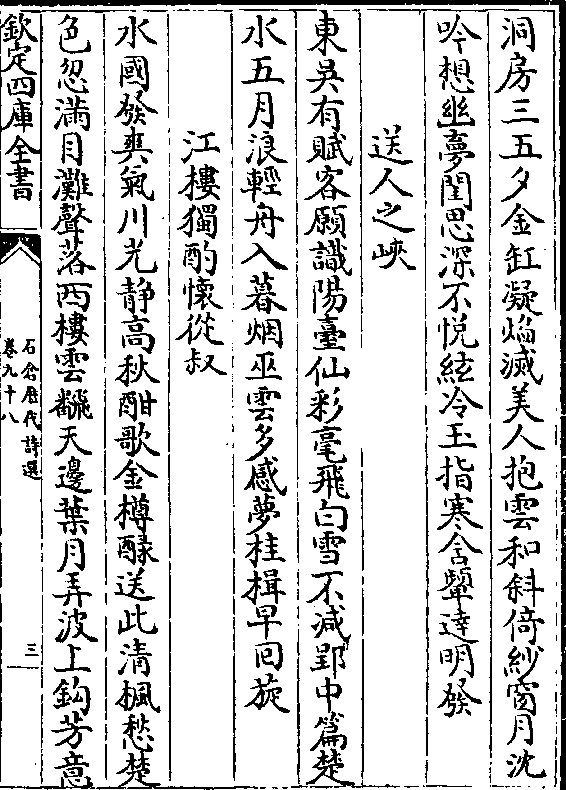 洞房三五夕金缸凝焰滅美人抱雲和斜倚紗窗月沈
吟想幽夢閨思深不悦絃冷玉指寒含顰達明發
送人之峽
東吳有賦客願識陽臺仙彩毫飛白雪不減郢中篇楚
水五月浪輕舟入暮烟巫雲多感夢桂楫早回旋
江樓獨酌懷從叔
水國發爽氣川光静高秋酣歌金樽醁送此清楓愁楚
色忽滿目灘聲落西樓雲飜天邊葉月弄波上鈎芳意
欽定四庫全書
石倉歷代詩選
卷九十八
三